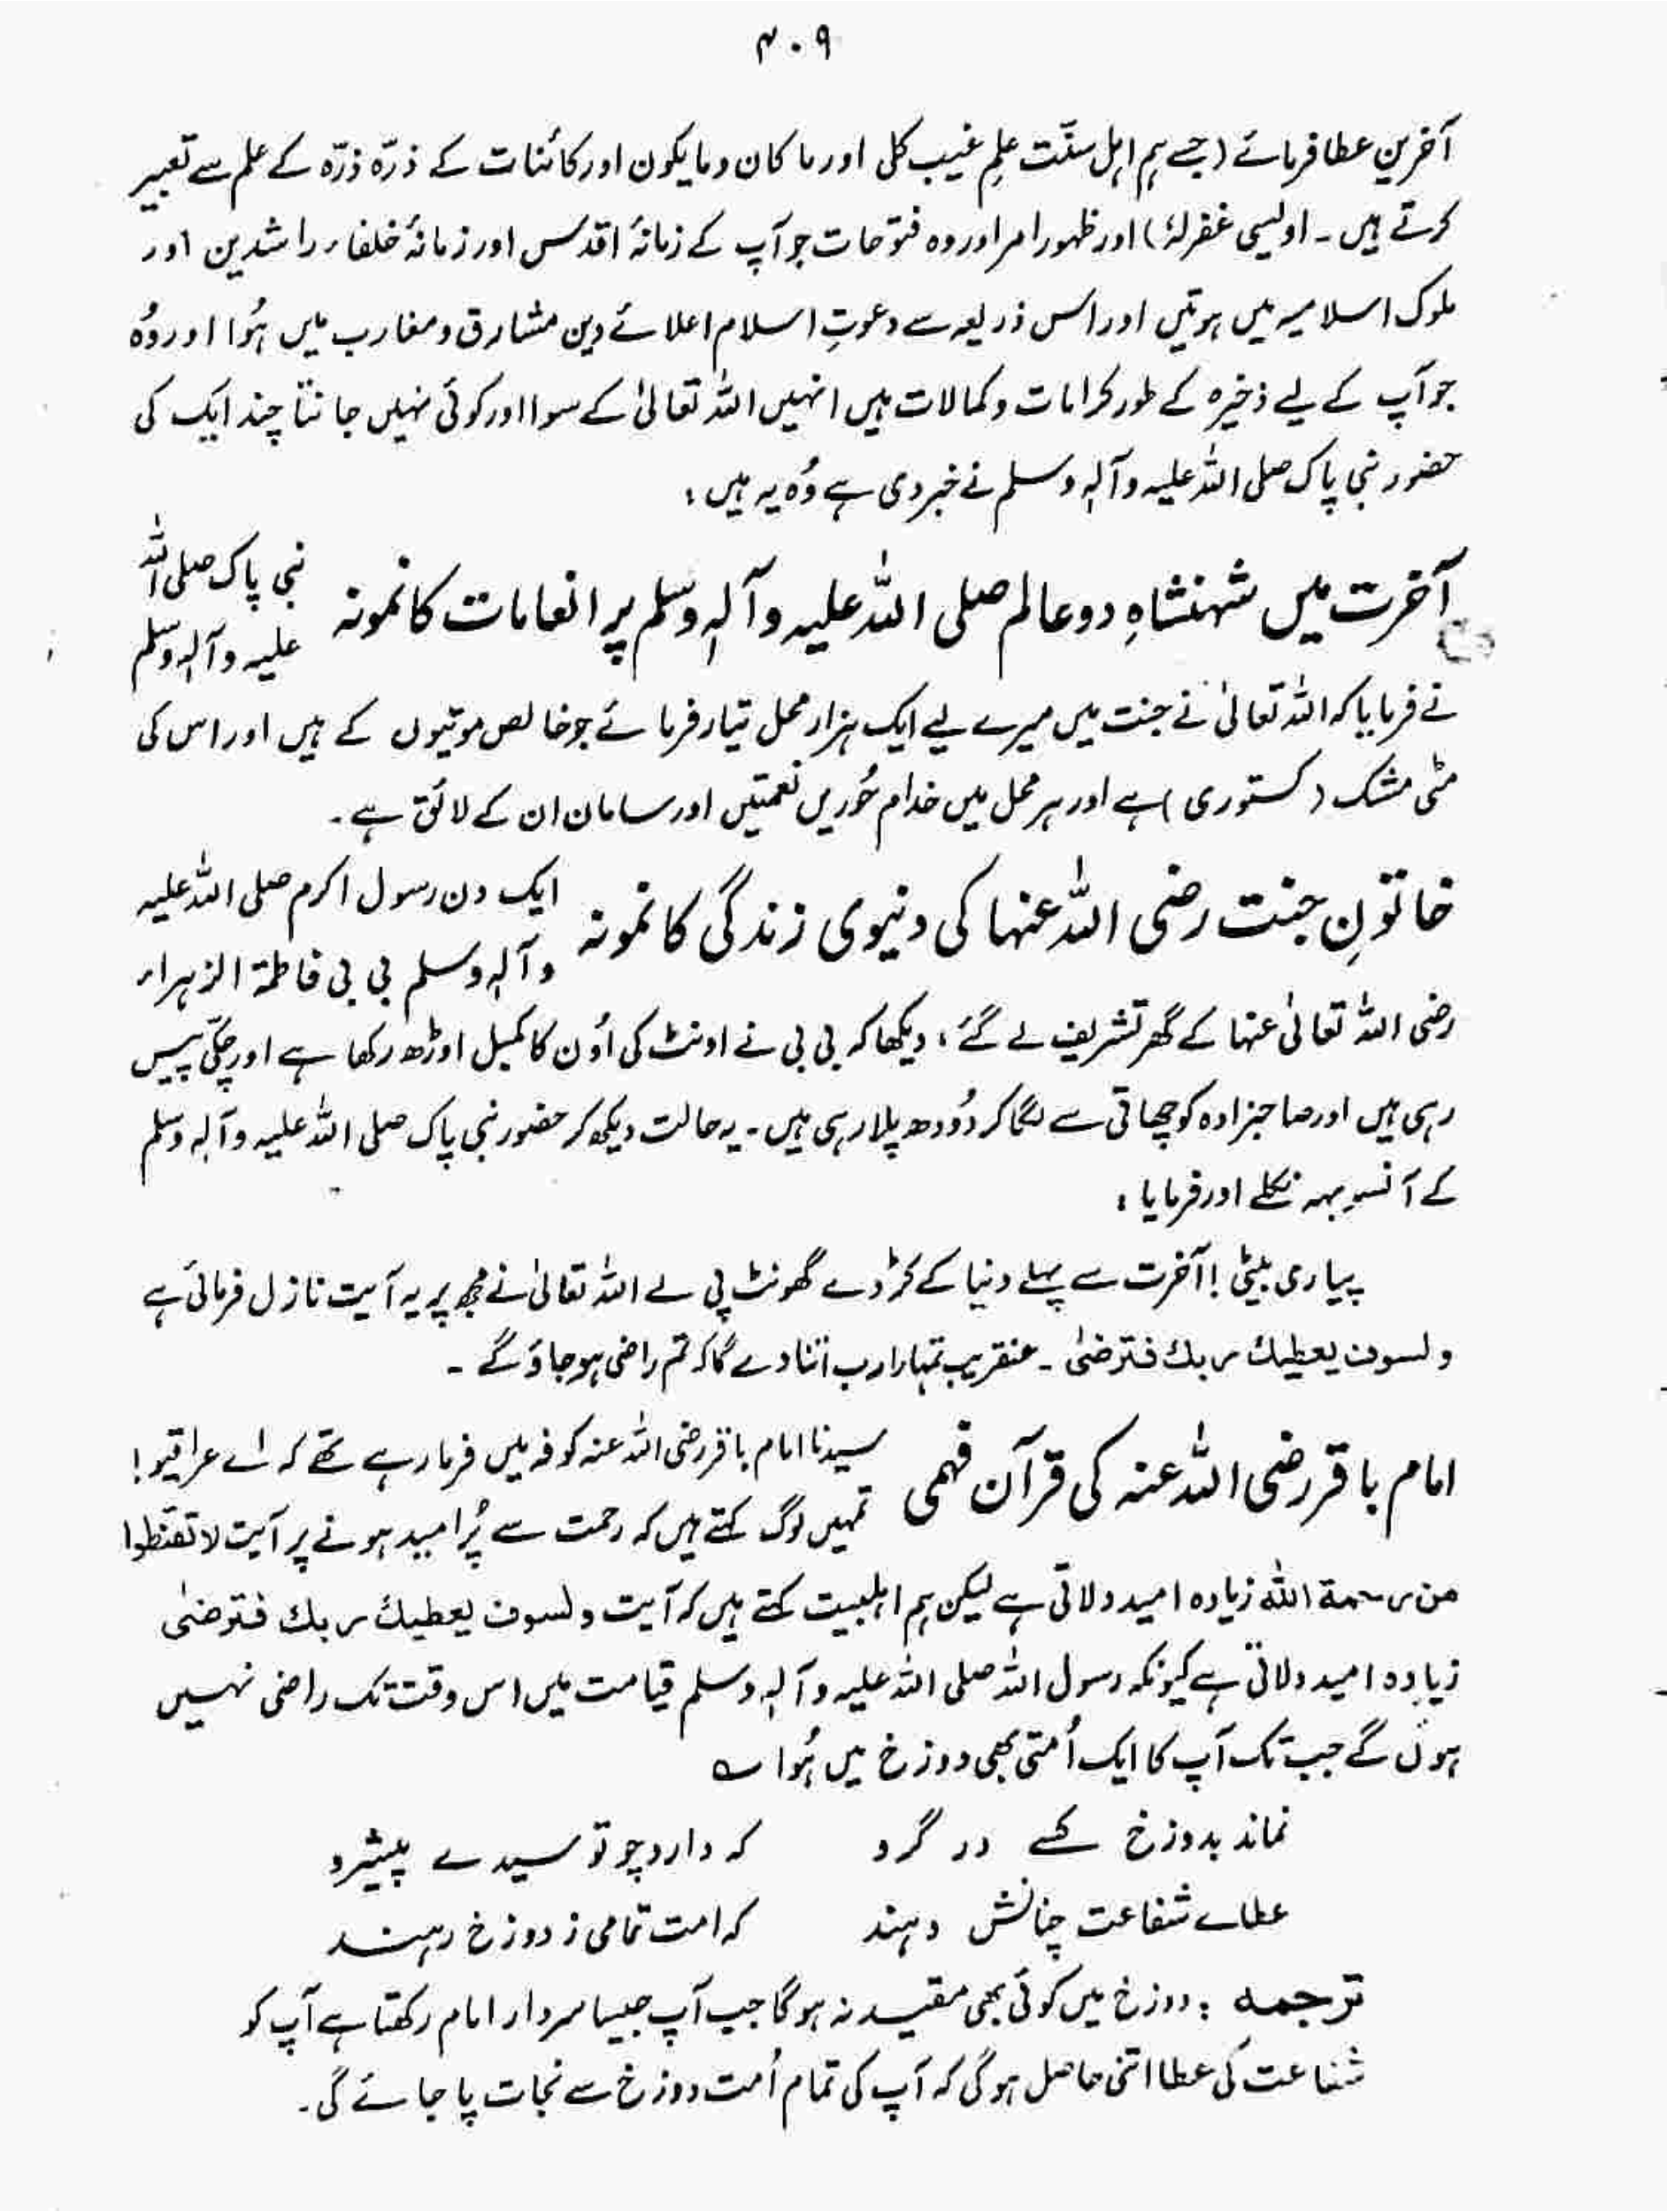 ۴۰۹
آخرین عطا فرمائے (جسے ہم اہل سنّت علمِ غیب کلی اور ما کان وما یکون اور کائنات کے ذرّہ ذرّہ کے علم سے تعبیر
کرتے ہیں ۔ اویسی غفرلہٗ) اور ظہور امر اور وہ فتوحات جو آپ کے زمانۂ اقدس اور زمانۂ خلفاء راشدین اور
ملوک اسلامیہ میں ہوئیں اور اس ذریعہ سے دعوتِ اسلام اعلائے دین مشارق و مغارب میں ہُوا اور وُہ
جو آپ کے لیے ذخیرہ کے طور کرامات و کمالات ہیں انہیں اللہ تعالیٰ کے سوا اور کوئی نہیں جانتا چند ایک کی
حضور نبی پاک صلی اللہ علیہ وآلہٖ وسلم نے خبر دی ہے وُہ یہ ہیں :
آخرت میں شہنشاہِ دو عالم صلی اللہ علیہ وآلہٖ وسلم پر انعامات کا نمونہ نبی پاک صلی اللہ
علیہ وآلہٖ وسلم
نے فرمایا کہ اللہ تعالیٰ نے جنت میں میرے لیے ایک ہزار محل تیار فرمائے جو خالص موتیوں کے ہیں اور اس کی
مٹی مشک (کستوری) ہے اور ہر محل میں خدام حُوریں نعمتیں اور سامان ان کے لائق ہے ۔
خاتونِ جنت رضی اللہ عنہا کی دنیوی زندگی کا نمونہ ایک دن رسول اکرم صلی اللہ علیہ
وآلہٖ وسلم بی بی فاطمۃ الزہراء
رضی اللہ تعالیٰ عنہا کے گھر تشریف لے گئے ، دیکھا کہ بی بی نے اونٹ کی اُون کا کمبل اوڑھ رکھا ہے اور چکّی پیس
رہی ہیں اور صاحبزادہ کو چھاتی سے لگا کر دُودھ پلا رہی ہیں ۔ یہ حالت دیکھ کر حضور نبی پاک صلی اللہ علیہ وآلہٖ وسلم
کے آنسو بہہ نکلے اور فرمایا :
پیاری بیٹی ! آخرت سے پہلے دنیا کے کڑوے گھونٹ پی لے اللہ تعالیٰ نے مجھ پر یہ آیت نازل فرمائی ہے
ولسوف یعطیك ربك فترضیٰ ۔ عنقریب تمہارا رب اتنا دے گا کہ تم راضی ہو جاؤ گے ۔
امام باقر رضی اللہ عنہ کی قرآن فہمی سیدنا امام باقر رضی اللہ عنہ کوفہ میں فرما رہے تھے کہ اے عراقیو !
تمہیں لوگ کہتے ہیں کہ رحمت سے پُر امید ہونے پر آیت لا تقنطوا
من رحمة اللہ زیادہ امید دلاتی ہے لیکن ہم اہلبیت کہتے ہیں کہ آیت ولسوف یعطیك ربك فترضیٰ
زیادہ امید دلاتی ہے کیونکہ رسول اللہ صلی اللہ علیہ وآلہٖ وسلم قیامت میں اس وقت تک راضی نہیں
ہوں گے جب تک آپ کا ایک اُمتی بھی دوزخ میں ہُوا ؎
نماند بدوزخ کسے در گرو کہ دارد چو تو سیدے پیشرو
عطاے شفاعت چنانش دہند کہ امت تمامی ز دوزخ رہند
ترجمہ : دوزخ میں کوئی بھی مقید نہ ہوگا جب آپ جیسا سردار امام رکھتا ہے آپ کو
شفاعت کی عطا اتنی حاصل ہوگی کہ آپ کی تمام اُمت دوزخ سے نجات پا جائے گی ۔